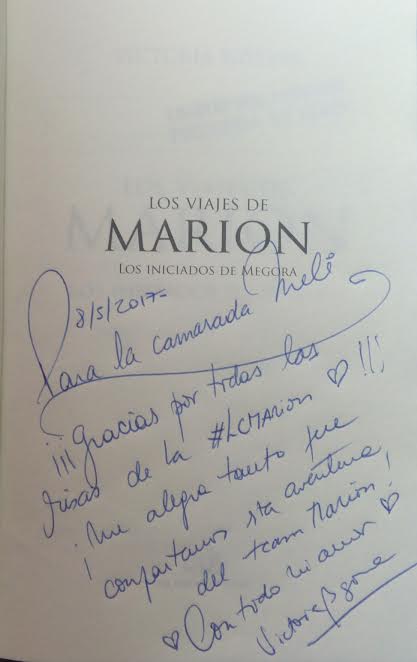 LOS VIAJES DE
MARION
LOS INICIADOS DE MEGORA
8/5/2017-
Para la camarada Meli
¡¡¡Gracias por todas las
risas de la #LCMARION ♡ !!!
¡Me alegra tanto que
compartamos sta aventura
del team Marion!
♡ Con todo mi amor ♡